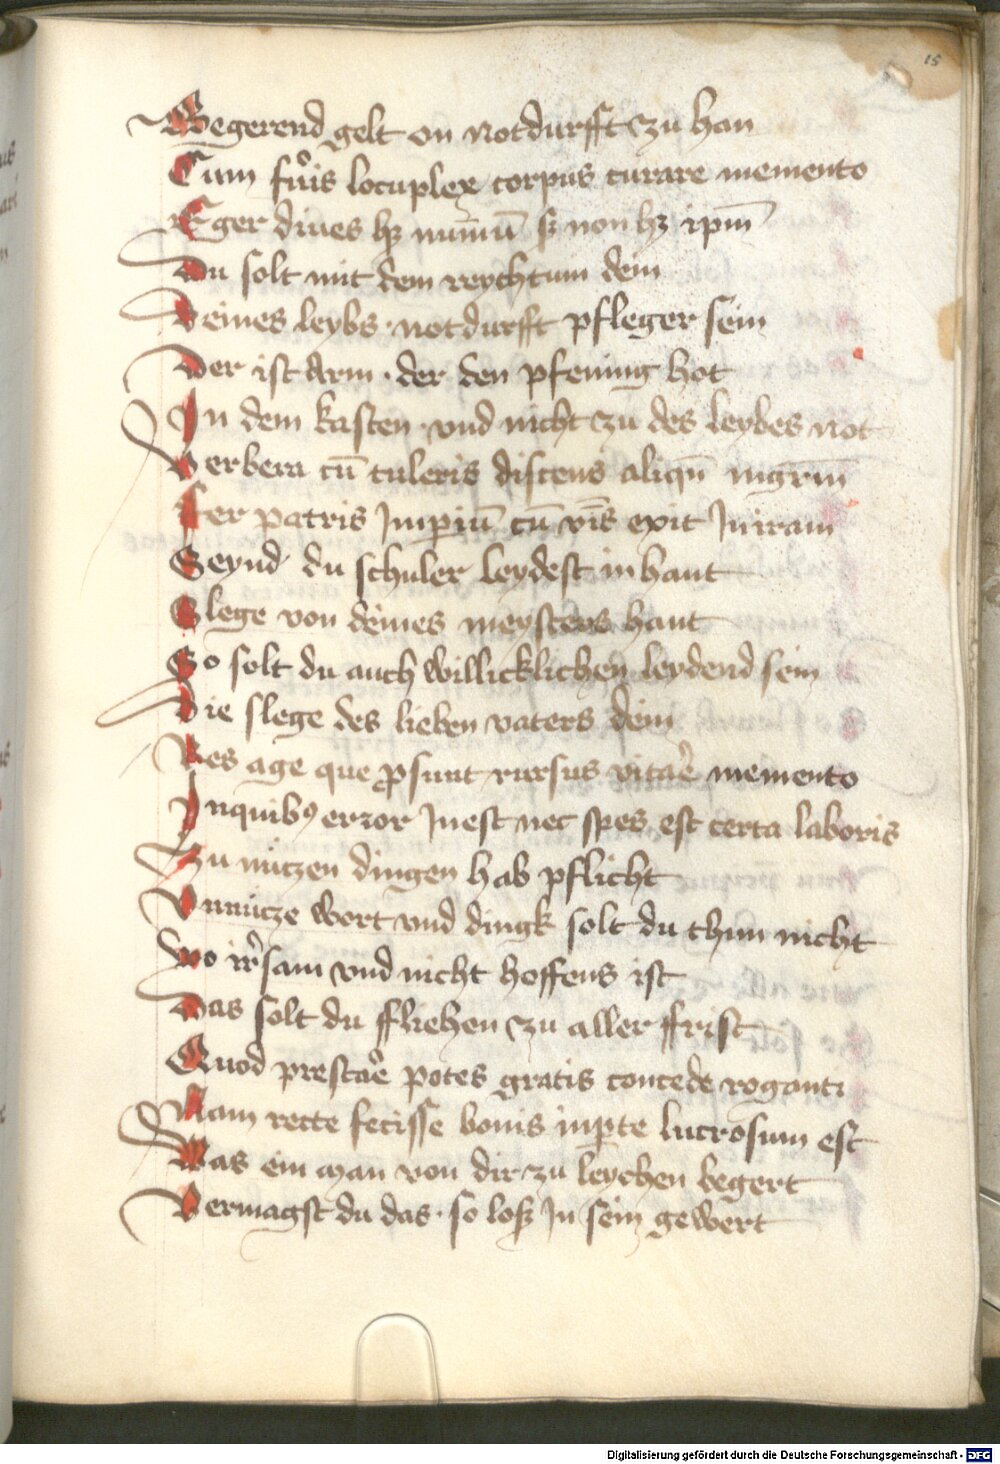 15
Begerend gelt on notdurfft zu han
Cum fu͛is locuplex corpus curare memento
Eger diues hꝫ num̄ū sꝫ non hꝫ ip̄m
Du solt mit dem reychtum dein
Deines leybs · notdurfft pfleger sein
Der ist Arm · der den pfening hot
In dem kasten · vnd nicht zu des leybes not
Verbera cū tuleris discens aliqn̄ mgr̄m
Fer patris Imp̄iū cū v̄is exit In iram
Seynd du schuler leydest in haut
Slege von deines meysters hant
So solt du auch willicklichen leydend sein
Die slege des lieben vaters dein
Res age que ꝓsunt rursus vitar̄e memento
Inquibꝰ error Inest nec spes est certa laboris
Zu nutzen dingen hab pflicht
Vnnucze wort vnd dingk solt du thun nicht
Wo irr̄sam vnd nicht hoffens ist
Das solt du ffliehen zu aller ffrist
Quod prestar̄e potes gratis concede roganti
Nam recte fecisse bonis inꝑte lucrosum est
Was ein man von dir zu leychen begert
Vermagst du das · so loß In sein gewert
Digitalisierung gefördert durch die Deutsche Forschungsgemeinschaft - DFG